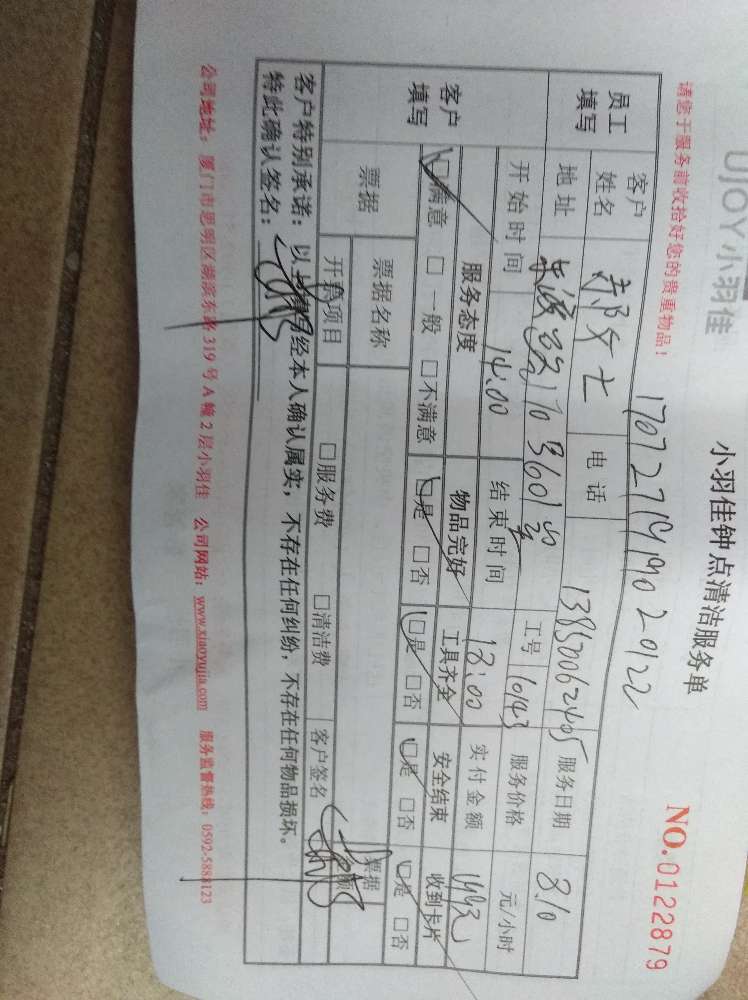 UJOY小羽佳
小羽佳钟点清洁服务单
请您于服务前收拾好您的贵重物品！
NO.0122879
员工填写
客户姓名 女士 电话 13850062405 服务日期 8.10
地址 3601 工号 10143 服务价格 元/小时
开始时间 14:00 结束时间 18:00 实付金额
客户填写
服务态度 物品完好 工具齐全 安全结束 收到卡片
□满意 □一般 □不满意 □是 □否 □是 □否 □是 □否 □是 □否
票据 票据名称 票据
开票项目 □服务费 □清洁费 客户签名
客户特别承诺：以上 经本人确认属实，不存在任何纠纷，不存在任何物品损坏。
特此确认签名：
公司地址：厦门市思明区湖滨东路319号A幢2层小羽佳 公司网站：www.xiaoyujia.com 服务监督热线：0592-5888123